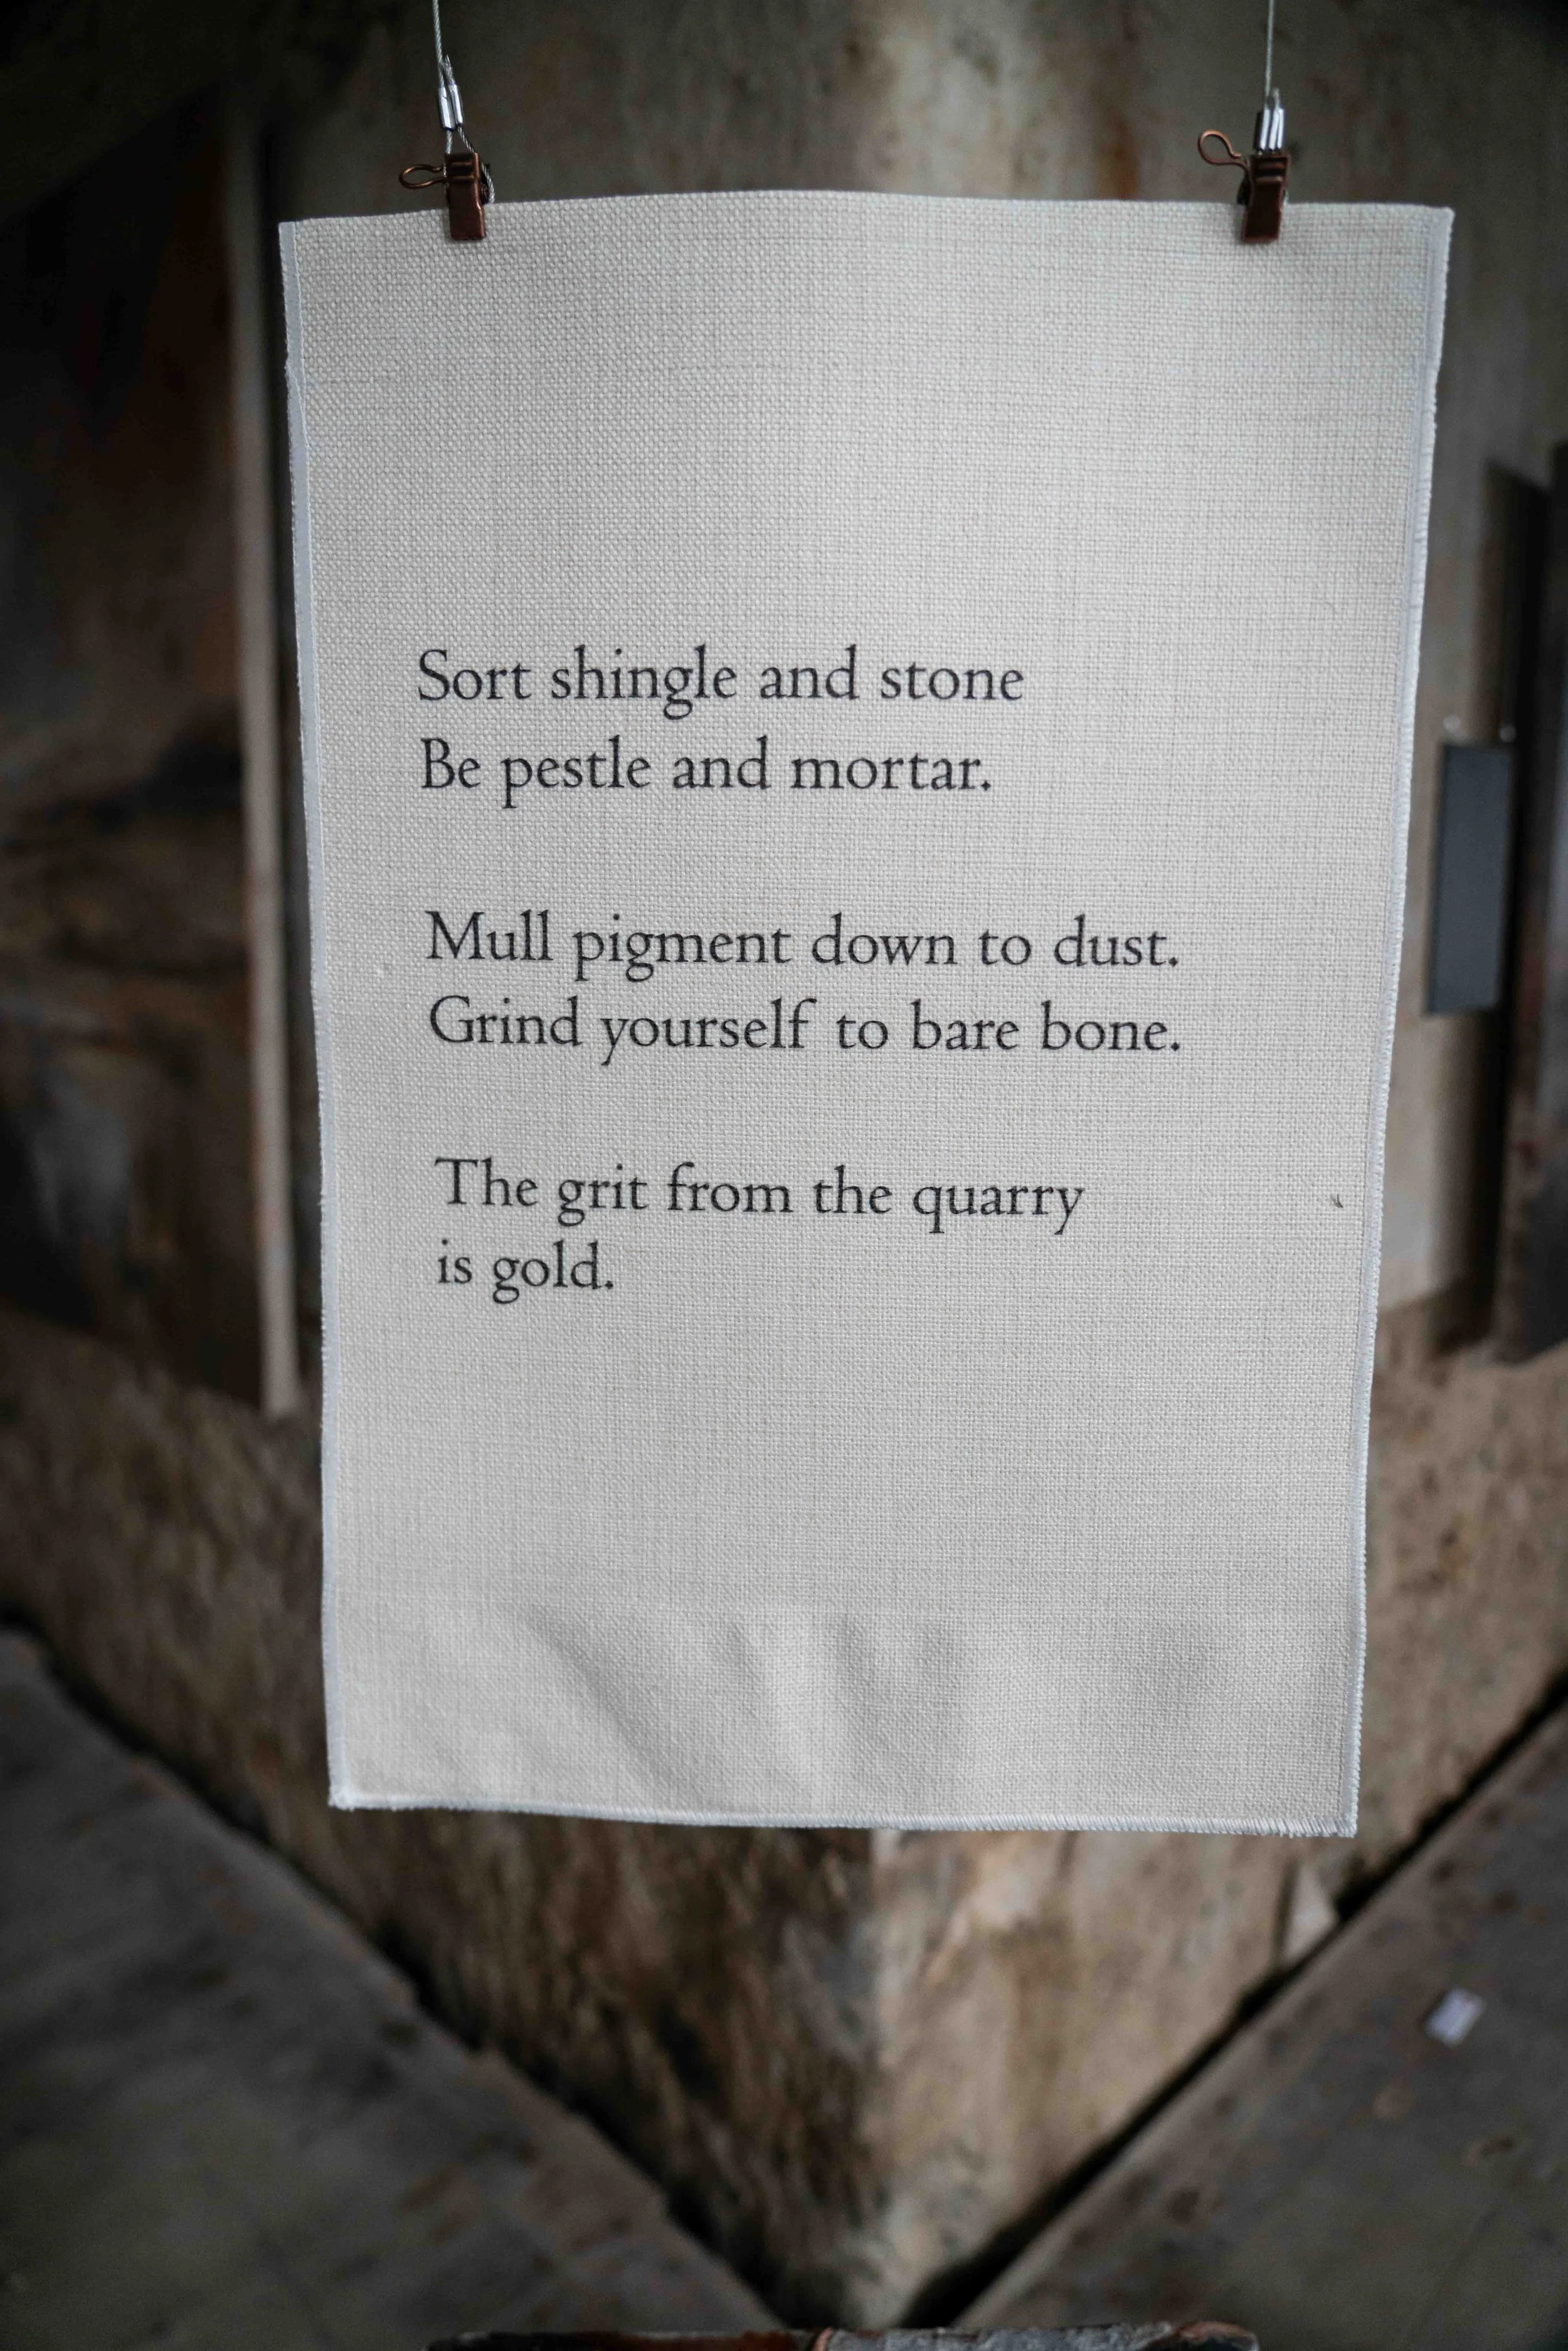 Sort shingle and stone
Be pestle and mortar.
Mull pigment down to dust.
Grind yourself to bare bone.
The grit from the quarry
is gold.